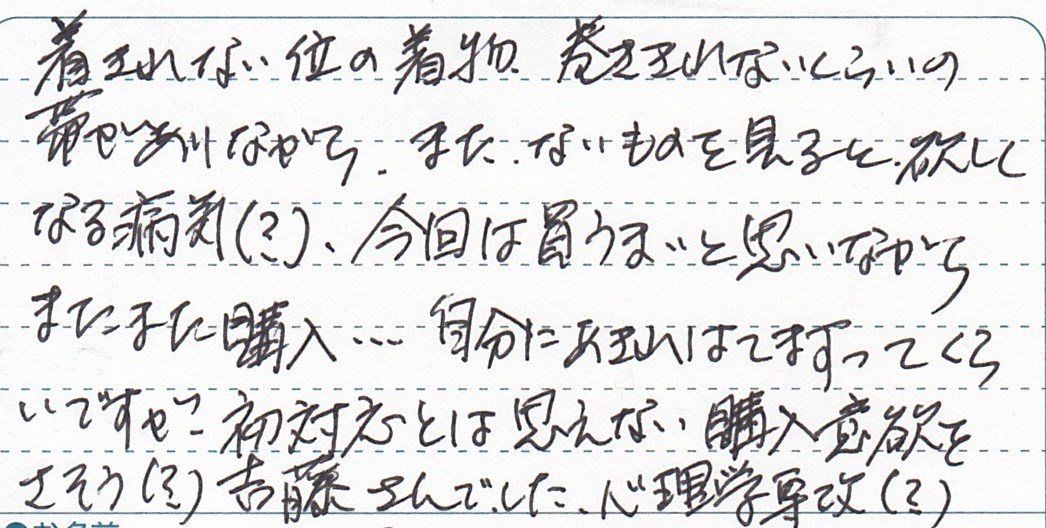 着きれない位の着物、巻ききれないくらいの
帯がありながら、また、ないものを見ると、欲しく
なる病気(?)、今回は買うまいと思いながら
またまた購入… 自分にあきれはてますってくら
いですが… 初対応とは思えない購入意欲を
さそう(?)吉藤さんでした、心理学専攻(?)
お名前